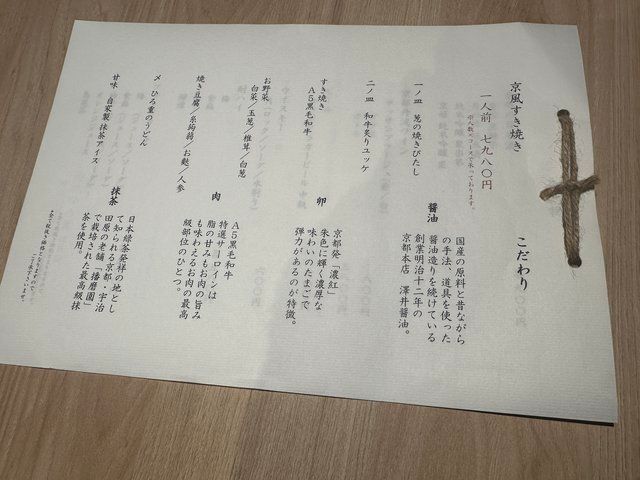 京風すき焼き
一人前 七九八〇円
※人数×コースで承っております。
一ノ皿 葱の焼きびたし
二ノ皿 和牛炙りユッケ
すき焼き
A5黒毛和牛
お野菜
白菜/玉葱/椎茸/白葱
焼き豆腐/糸蒟蒻/お麩/人参
〆 ひろ重のうどん
甘味 自家製 抹茶アイス
こだわり
醤油
国産の原料と昔ながら
の手法、道具を使った
醤油造りを続けている
創業明治十二年の
京都本店 澤井醤油。
卵
京都発「濃紅」
朱色に輝く濃厚な
味わいのたまごで
弾力があるのが特徴。
肉
A5黒毛和牛
特選サーロインは
脂の甘みもお肉の旨み
も味わえるお肉の最高
級部位のひとつ。
抹茶
日本緑茶発祥の地とし
て知られる京都・宇治
田原の老舗「播磨園」
で栽培された最高級抹
茶を使用。